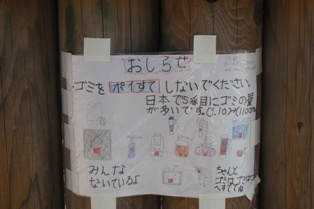 おしらせ
ゴミを ポイすて しないでください。
日本で5番目にゴミの量
が多いです。
みんな
ないているよ
ちゃんと